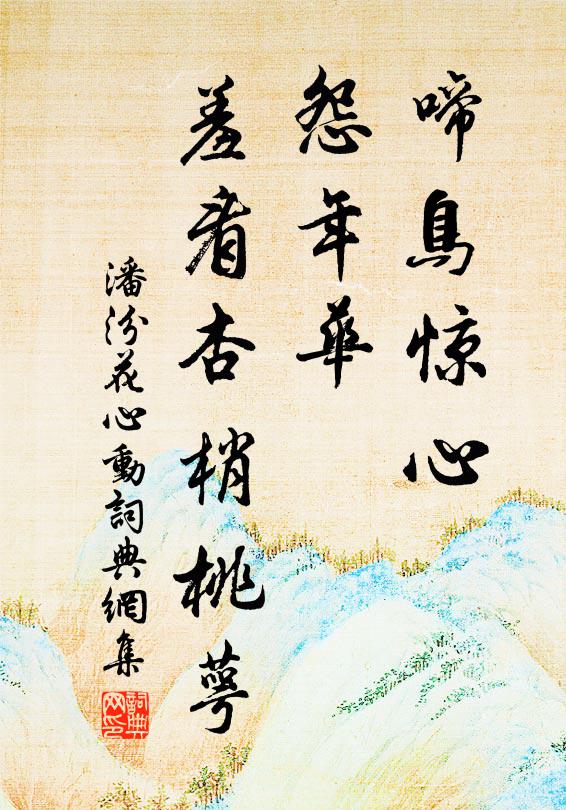 啼鳥惊心
怨年華
羞看杏梢桃萼
潘汾花心動詞典網集
詞典網印